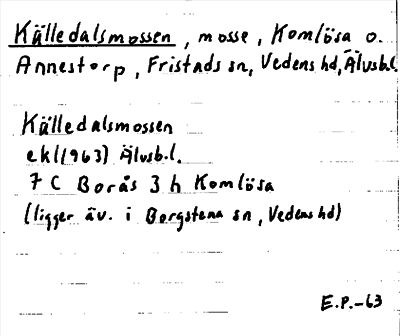 Källedalsmossen, mosse, Komlösa o.
Annestorp, Fristads sn, Vedens hd, Älvsb.l.
Källedalsmossen
ekl(1963) Älvsb.l.
7 C Borås 3 h Komlösa
(ligger äv. i Borgstena sn, Vedens hd)
E.P.-63